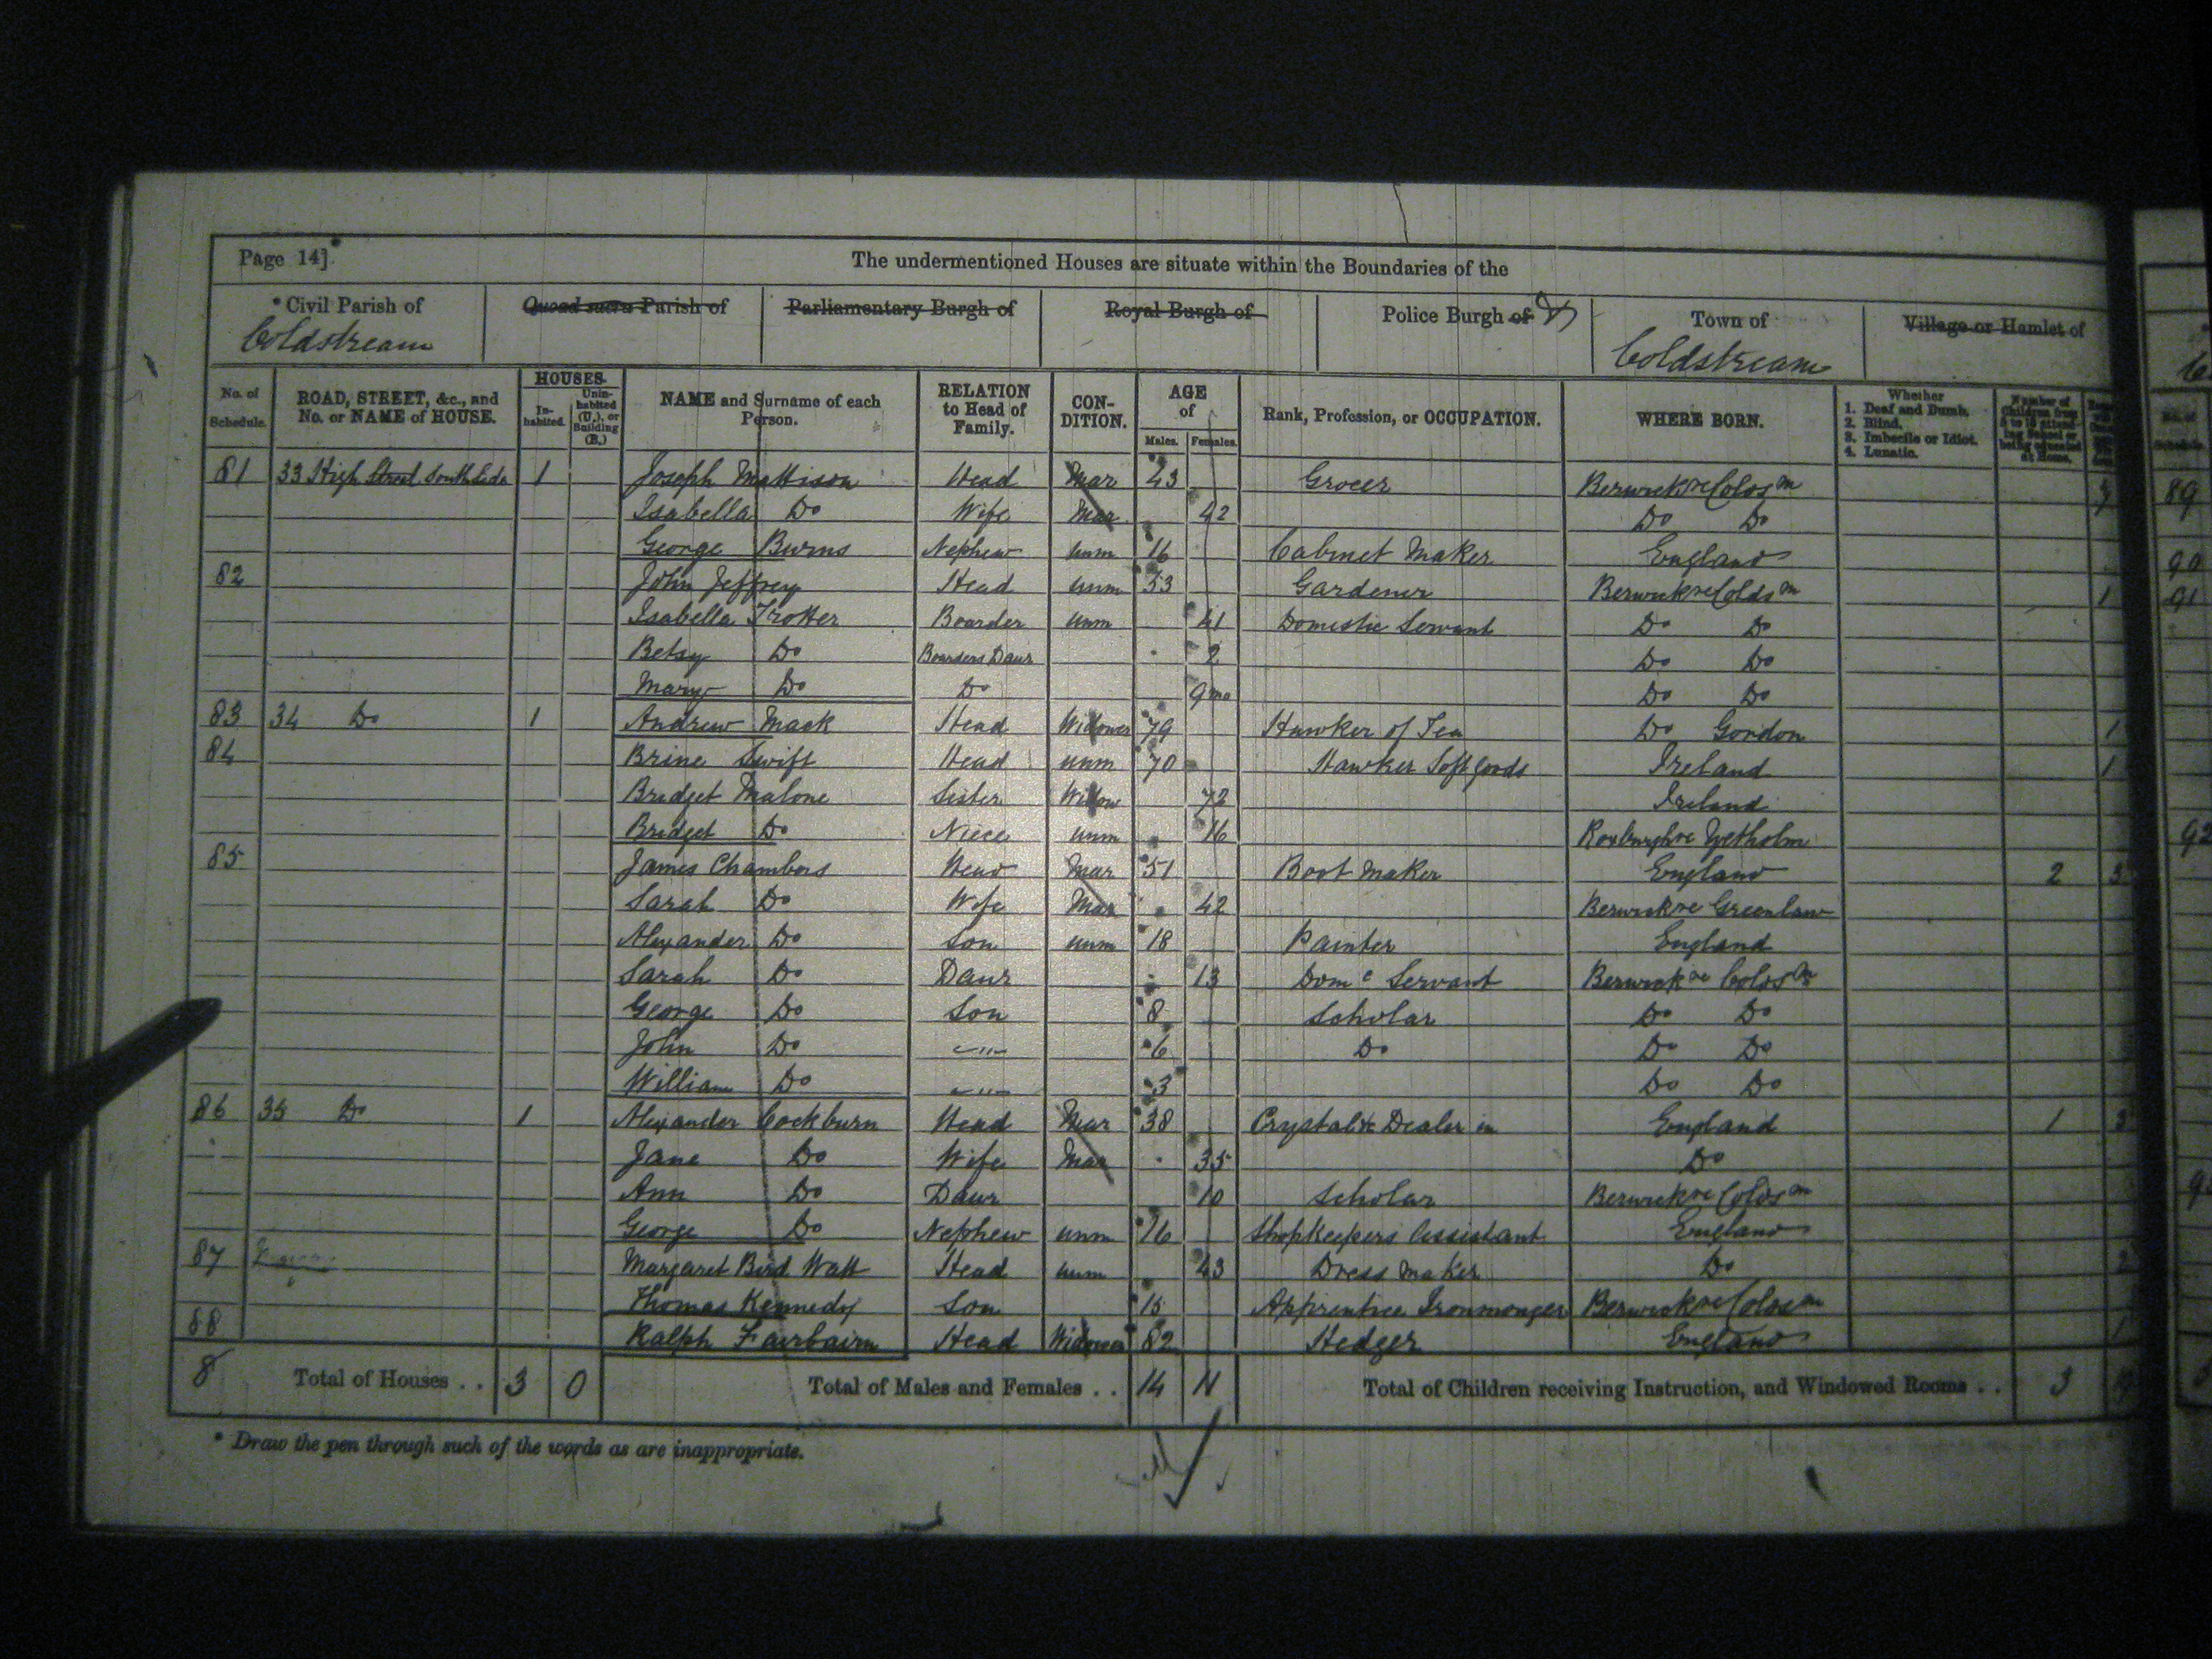 Page 14]
The undermentioned Houses are situate within the Boundaries of the
* Civil Parish of Quoad sacra Parish of Parliamentary Burgh of Royal Burgh of Police Burgh of Town of Village or Hamlet of
Coldstream Coldstream
No. of Schedule. ROAD, STREET, &c., and No. or NAME of HOUSE. HOUSES. Inhabited. Uninhabited (U.), or Building (B.) NAME and Surname of each Person. RELATION to Head of Family. CONDITION. AGE of Males. Females. Rank, Profession, or OCCUPATION. WHERE BORN. Whether 1. Deaf and Dumb. 2. Blind. 3. Imbecile or Idiot. 4. Lunatic. Number of Children from 5 to 13 attending School or being educated at Home.
81 33 High Street South Side 1 Joseph Mattison Head Mar 43 Grocer Berwickre Coldsm
Isabella Do Wife Mar 42 Do Do
George Burns Nephew unm 16 Cabinet Maker England
82 John Jeffrey Head unm 53 Gardener Berwickre Coldsm 1
Isabella Trotter Boarder unm 41 Domestic Servant Do Do
Betsy Do Boarders Daur 2 Do Do
Mary Do Do 9mo Do Do
83 34 Do 1 Andrew Mack Head Widower 79 Hawker of Tea Do Gordon 1
84 Brine Swift Head unm 70 Hawker Soft goods Ireland 1
Bridget Malone Sister Widow 72 Ireland
Bridget Do Niece unm 16 Roxburghre Yetholm
85 James Chambers Head Mar 51 Boot Maker England 2 3
Sarah Do Wife Mar 42 Berwickre Greenlaw
Alexander Do Son unm 18 Painter England
Sarah Do Daur 13 Dome Servant Berwickre Coldsm
George Do Son 8 Scholar Do Do
John Do " 6 Do Do Do
William Do " 3 Do Do
86 35 Do 1 Alexander Cockburn Head Mar 38 Crystal &c Dealer in England 1 3
Jane Do Wife Mar 35 Do
Ann Do Daur 10 Scholar Berwickre Coldsm
George Do Nephew unm 16 Shopkeepers Assistant England
87 Margaret Bird Watt Head unm 43 Dress Maker Do 2
Thomas Kennedy Son 15 Apprentice Ironmonger Berwickre Coldsm
88 Ralph Fairbairn Head Widower 82 Hedger England 1
8 Total of Houses . . 3 0 Total of Males and Females . . 14 11 Total of Children receiving Instruction, and Windowed Rooms . . 3
* Draw the pen through such of the words as are inappropriate.
89
90
91